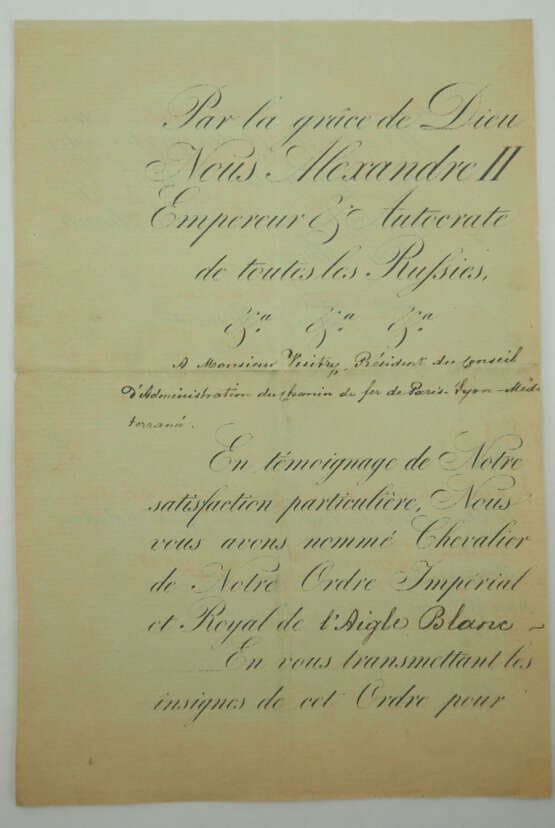 Par la grâce de Dieu
Nous Alexandre II
Empereur & Autocrate
de toutes les Russies,
&.a &.a &.a
A Monsieur Vuitry, Président du Conseil
D'Administration du chemin de fer de Paris-Lyon-Médi
terrané.
En témoignage de Notre
satisfaction particulière, Nous
vous avons nommé Chevalier
de Notre Ordre Impérial
et Royal de l'Aigle Blanc –
En vous transmettant les
insignes de cet Ordre pour